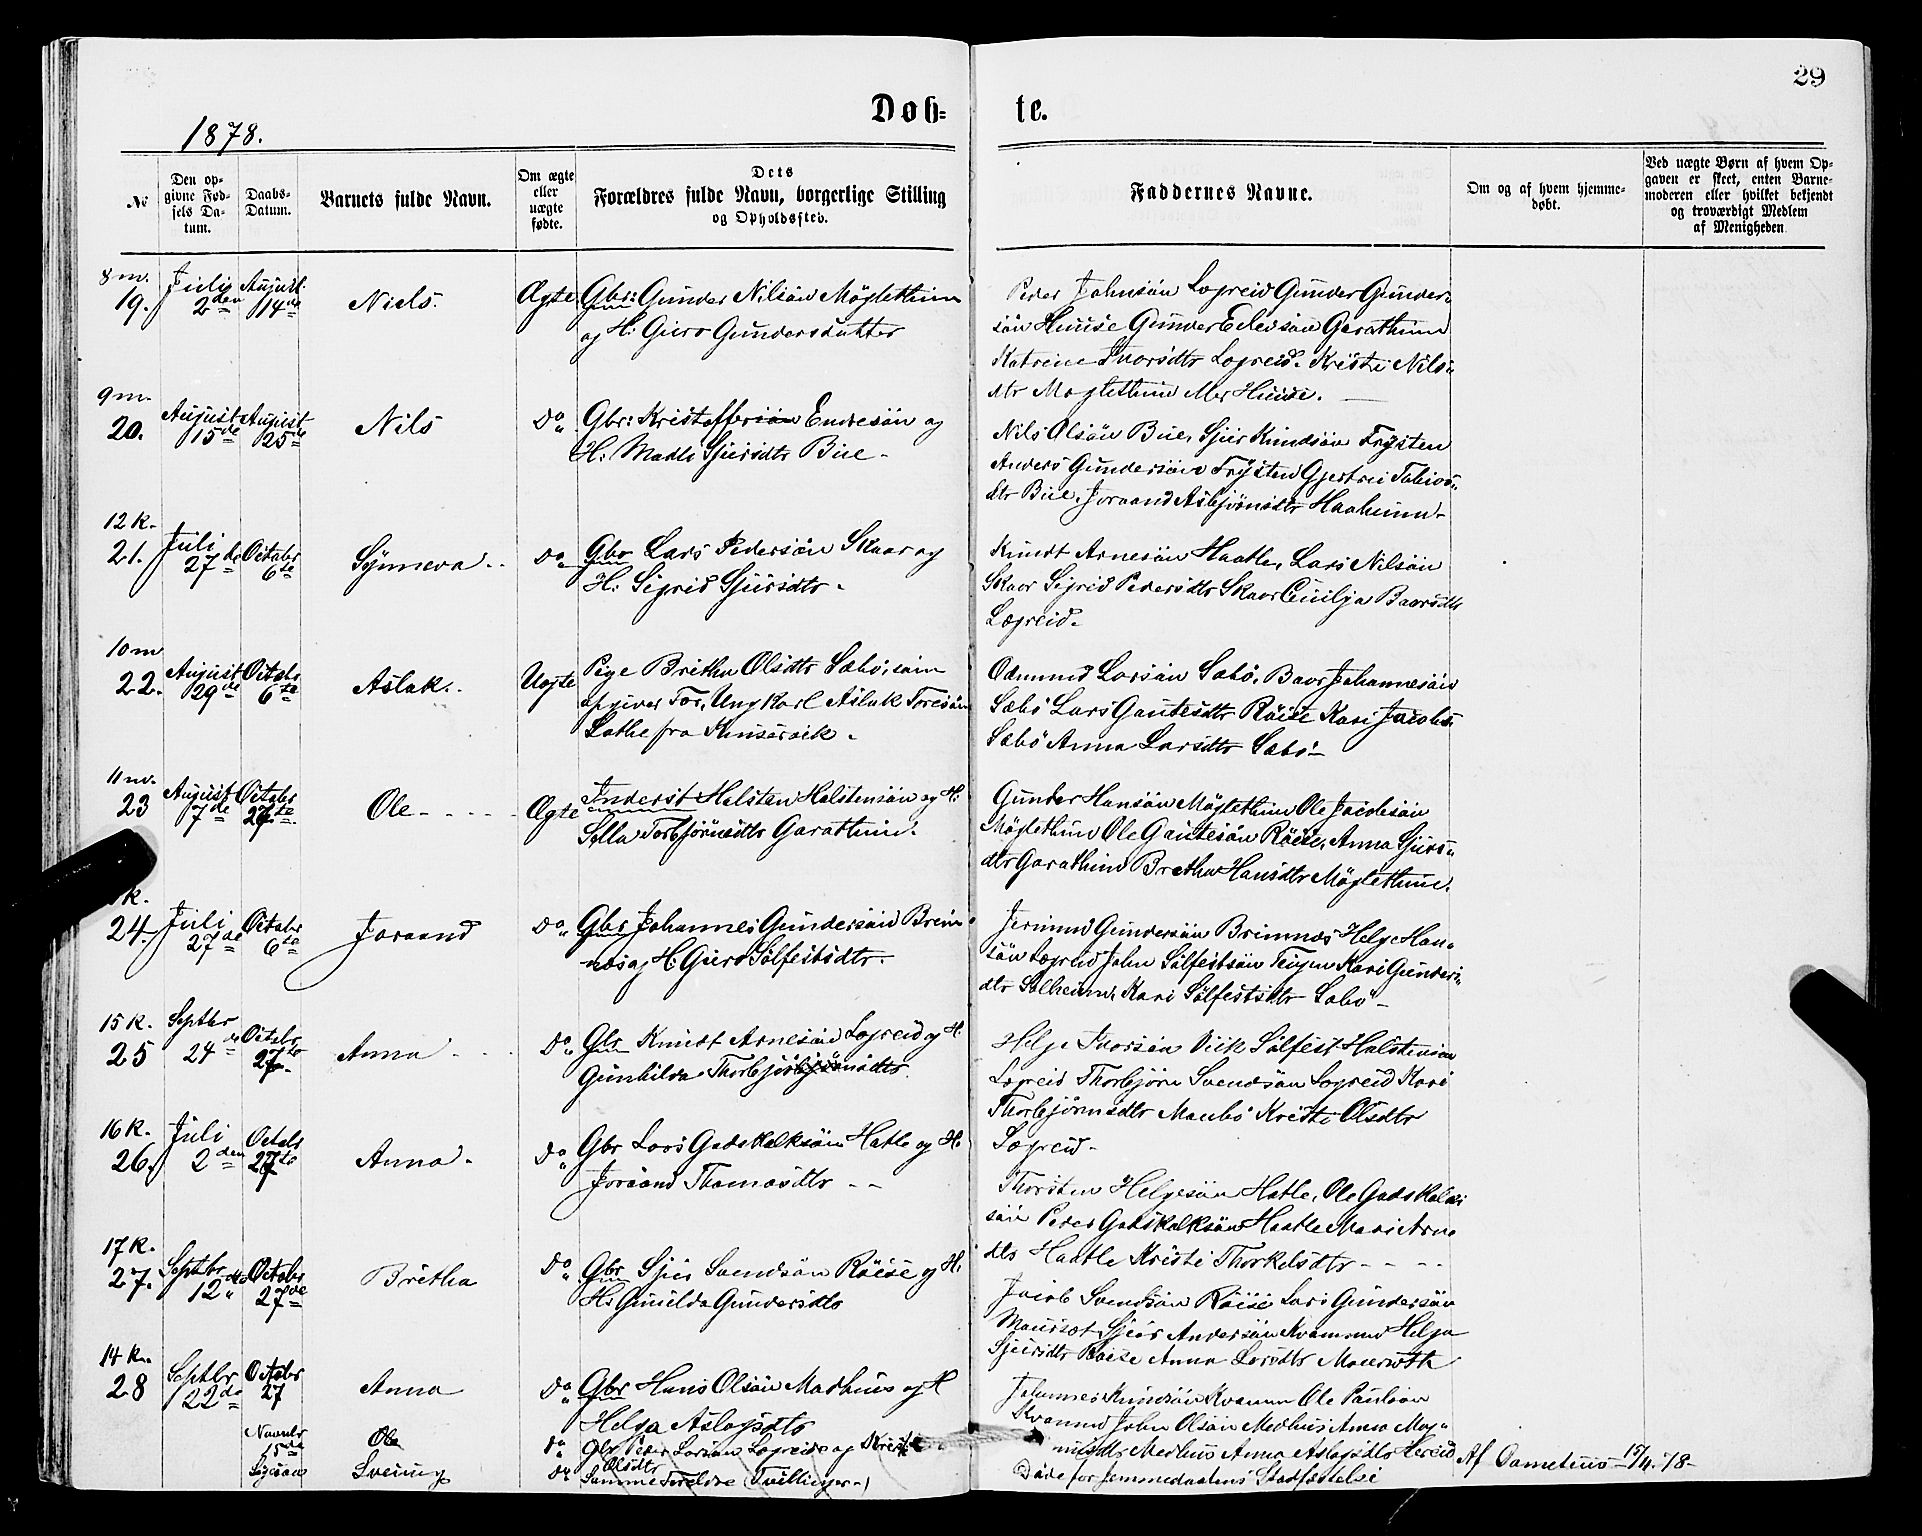 29
Døb=
te.
1878.
№
Den op-
givne Fød-
sels Da-
tum.
Daabs-
Datum.
Barnets fulde Navn.
Om ægte
eller
uægte
fødte.
Dets
Forældres fulde Navn, borgerlige Stilling
og Opholdssted.
Faddernes Navne.
Om og af hvem hjemme-
døbt.
Ved uægte Børn af hvem Op-
gaven er skeet, enten Barne-
moderen eller hvilket bekjendt
og troværdigt Medlem
af Menigheden
8 m.
19.
Juli
2den
August
14de
Niels.
Ægte
Gbr: Gunder Nilsön Möglethun
og H: Guro Gundersdatter
Peder Johnsön Legreid Gunder Gunder-
sön Huuse Gunder Garathun
Katrine Ivorsdtr Legreid. Kristi Nils-
dtr Moglethun Huuse.
9 m.
20.
August
15de
August
25de
Nils
Do
Gbr: Kristoffersön Endresön og
H: Madli Sjursdtr Bue
Nils Olsön Bue, Sjur Knudsön Trysten
Anders Gundersön Trysten Gjertrui
dtr Bue, Joraand Asbjörnsdtr Haaheim
12 K.
21.
Juli
27de
Octobr
6te
Synneva
Do
Gbr Lars Pedersön Skaar og
H: Sigrid Sjursdtr
Knudt Arnesön Haatle, Lars Nilsön
Skaar Sigrid Pedersdtr Skaar Cecilja Baarsdtr
Lægreid.
10 m
22.
August
29de
Octobr
6te
Aslak.
Uægte
Pige Britha Olsdtr Sæbö, som
opgiver Far, Ungkarl Aslak Toresön
Lothe fra Kinservik.
Odmund Larsön Sæbö, Baar Johannesön
Sæbö Lars Gautesdtr Röise Kari Jacobs
Sæbö Anna Larsdtr Sæbö
11 m.
23
August
7de
Octobr
27te
Ole
Ægte
Inderst Halsten Halstensön og H:
Torbjörnsdtr Garathun.
Gunder Hansön Möglethun Ole Jacobsön
Möglethun Ole Gautesön Röise, Anna Sjurs-
dtr Garathun Bretha Hansdtr Möglethun.
K.
24.
Juli
27de
Octobr
6te
Joraand
Do
Gbr Johannes Gundersön Brim-
næs og H: Guro Sölfestsdtr.
Jermund Gundersön Brimnæs Helge Han-
sön Lægreid John Sölfestsön Teigen Kari Gunders-
dtr Solheim, Kari Sölfestsdtr Sæbö
15 K.
25
Septbr
24de
Octobr
27te
Anna
Do
Gbr Knudt Arnesön Legreid og H:
Gunhilda Thorbjörnsdtr
Helge Ivorsön Viik Sölfest Halstensön
Legreid Thorbjörn Svendsön Legreid Kari
Thorbjörnsdtr Maubö Kristi Olsdtr
Lægreid
16 K.
26.
Juli
2den
Octobr
27de
Anna.
Do
Gbr Lars Godskalksön Hatle og H:
Joraand Thomasdtr
Thorsten Helgesön Hatle, Ole Godskalk-
sön Peder Godskalksön Haatle Mari Arne
dtr Haatle Kristi Thorkelsdtr
17 K.
27.
Septbr
12te
Octobr
27de
Britha
Do
Gbr Sjur Svendsön Röise og H:
H: Gunilda Gundersdtr
Jacob Svendsön Röise Lars Gundersön
Maurset, Sjur Andersön Kvammen Helga
Sjursdtr Röise Anna Larsdtr
14 K.
28
Septbr
22de
Octobr
27
Anna
Do
Gbr Hans Olsön Medhus og H
Helga Aslagsdtr
Johannes Knudsön Kvammen Ole Paulson
Kvammen John Olsön Medhus Anna Mag-
nusdtr Medhus Anna Aslagsdtr Hereid
Novmbr
15de
Ole
Do
Gbr Peder Larsön Legreid og Kristi
Olsdtr
Sveinung
Do
Samme Forældre (Tvillinger)
Döde for Jemmedaabens Stadfæstelse
Af 15/11 78